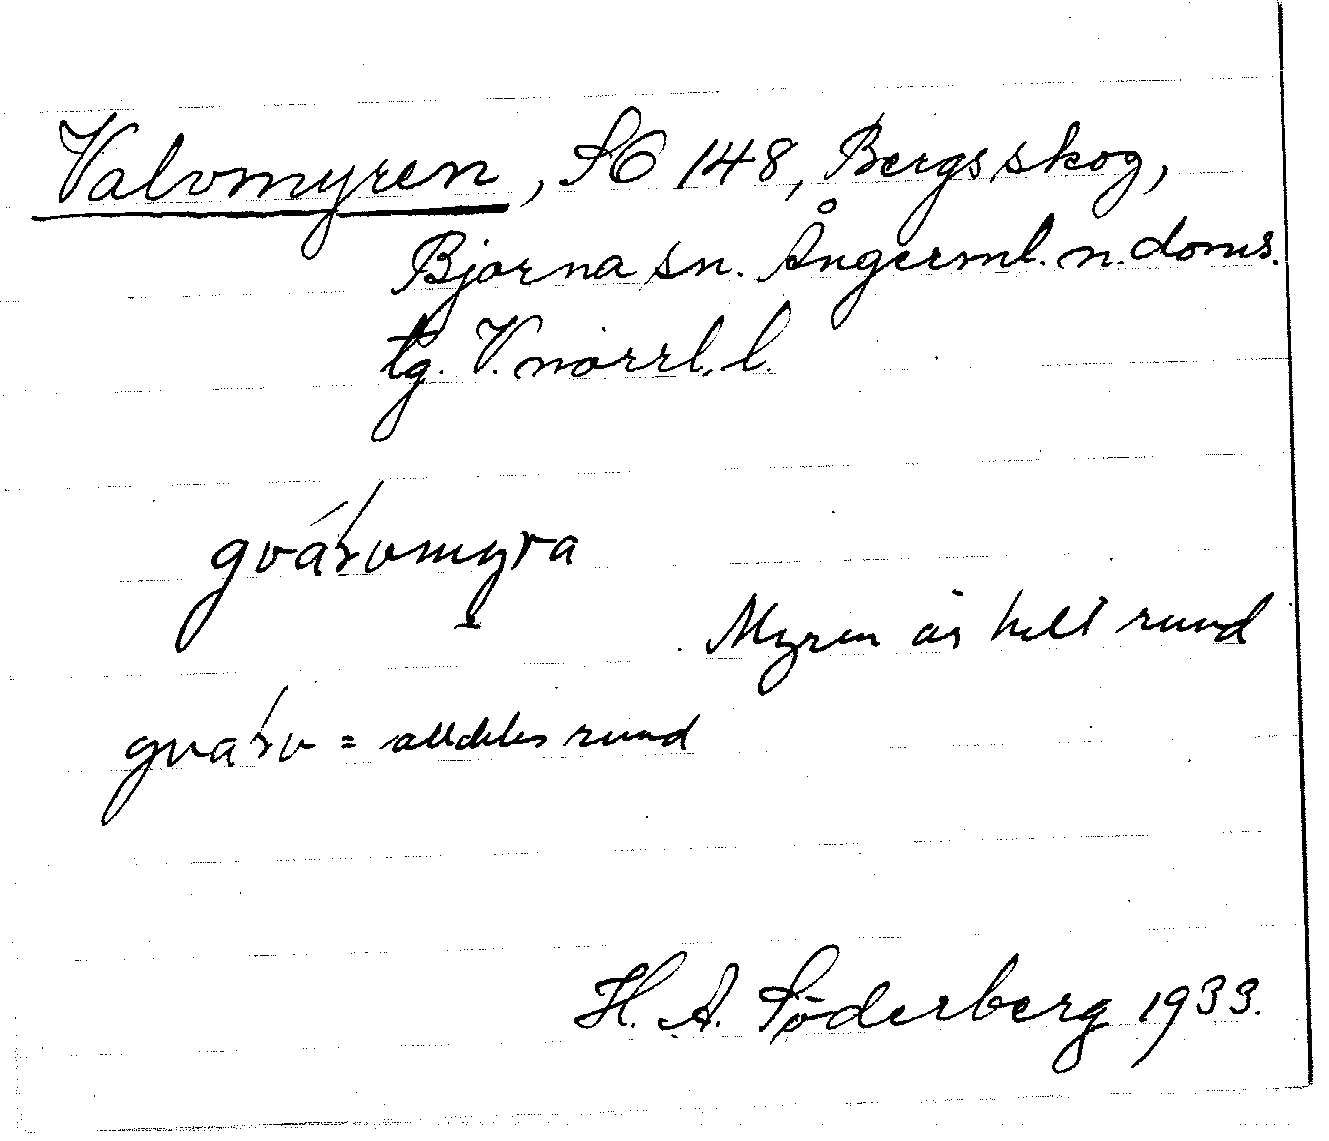 Valvomyren, SO 148, Bergsskog,
Björna sn. Ångerml. n. doms.
tg. V. norrl. l.
gváƚvomyra
Myren är helt rund
gvaƚv = alldeles rund
H. A. Söderberg 1933.